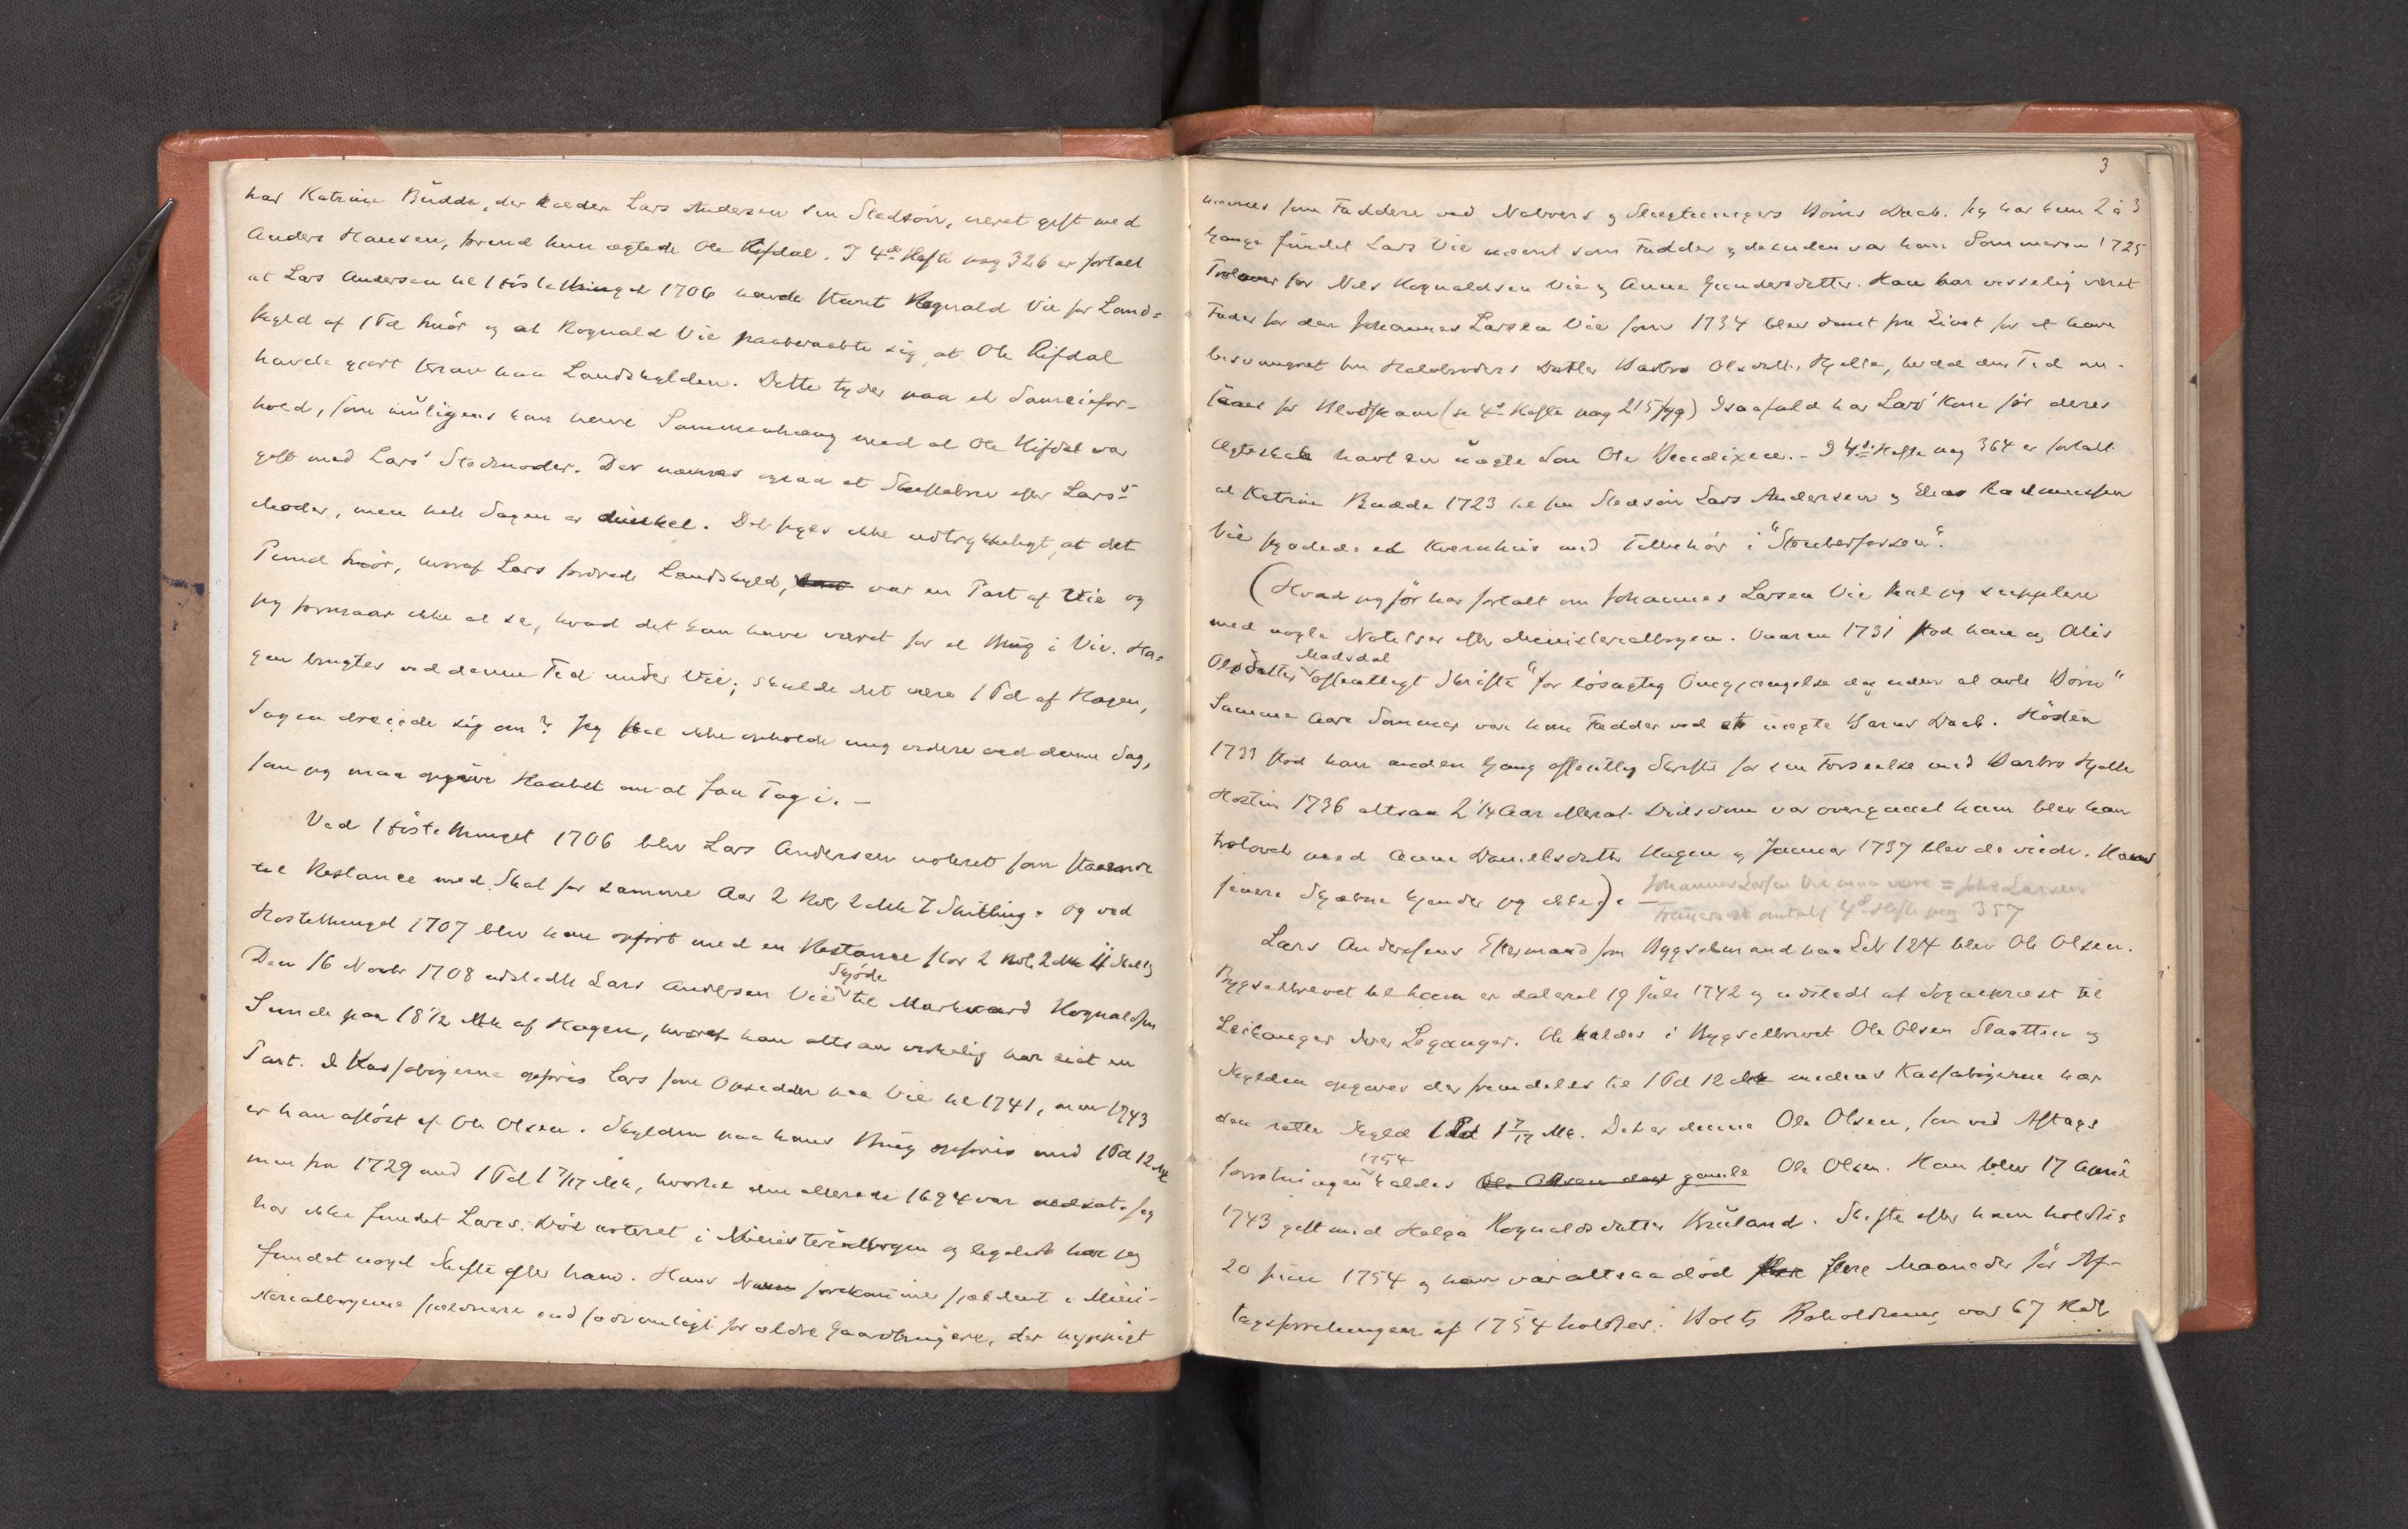 har Katrine Budde, der kalder Lars Andersen sin Stedsön, været gift med
Anders Hansen, forend hun ægtede Ole Rifdal. I 4de Hefte pag 326 er fortalt
at Lars Andersen til Höstethinget 1706 havde stevnt Rognald Vie for Land=
skyld af 1 Pd Smör og at Rognald Vie paaberaabte sig, at Ole Rifdal
havde gjort Krav paa Landskylden. Dette tyder paa et Sameiefor-
hold, som muligens kan have Sammenhæng med at Ole Rifdal var
gift med Lars's Stedmoder. Der nævnes ogsaa et Skiftebrev efter Lars's
Moder, men hele Sagen er dunkel. Det siges ikke udtrykkeligt, at det
Pund Smör, hvoraf Lars fordrede Landskyld, var en Part af Vie og
jeg formaar ikke at se, hvad det kan have været for et Brug i Vie. Ha=
gen brugtes ved denne Tid under Vie; skulde det være 1 Pd af Hagen,
Sagen dreiede sig om? Jeg skal ikke opholde mig videre ved denne Sag,
som jeg maa opgive Haabet om at faa Tag i. —
Ved Höstethinget 1706 blev Lars Andersen noteret som staaende
til Restance med Skat for samme Aar 2 Rdl 2 Mk 7 Skilling. Og ved
Höstethinget 1707 blev han opfört med en Restance stor 2 Rdl 2 Mk 11 Skill
Den 16 Novbr 1708 udstedte Lars Andersen Vie Skjöde til Markvard Rognaldsen
Sunde paa 18 1/2 Mk af Hagen, hvoraf han altsaa virkelig har eiet en
Part. I Kassabögerne opföres Lars som Opsidder paa Vie til 1741, men 1743
er han aflöst af Ole Olsen. Skylden paa hans Brug opföres med 1 Pd 12 Mk
men fra 1729 med 1 Pd 1 7/17 Mk, hvortil den allerede 1694 var nedsat. Jeg
har ikke fundet Lars's Död noteret i Ministerialbogen og har jeg
fundet noget Skifte efter ham. Hans Navn forekommer sjeldent i Mini-
sterialbögerne sjeldnere end sædvanligt for ældre Gaardbrugere, der hyppigt
3
nævnes som Faddere ved Naboers og Slægtningers Börns Daab. Jeg har kun 2 à 3
Gange fundet Lars Vie nævnt som Fadder og desuden var han Sommeren 1725
Forlover for Nils Rognaldsen Vie og Anna Gundersdatter. Han har visselig været
Fader for den Johannes Larsen Vie som 1734 blev dömt fra Livet for at have
besvangret sin Halvbroders Datter Barbro Olsdatter Hjelle, hvad den Tid an-
saaes for Blodskam (se 4de Hefte pag 215 fgg) Isaafald har Lars' Kone för deres
Ægteskab havt en uægte Sön Ole Bendixen. – I 4de Hefte pag 364 er fortalt
at Katrine Budde 1723 til sin Stedsön Lars Andersen og Elias Rasmussen
Vie skjödede et Kvernhus med Tilbehör i "Storebersfossen".
(Hvad jeg för har fortalt om Johannes Larsen Vie skal jeg supplere
med nogle Notitser efter Ministerialbogen. Vaaren 1731 stod han og Alis
Olsdatter Madsdal offentligt Skrifte "for lösagtig Omgjængelse dog uden at avle Börn"
Samme Aars Sommer var han Fadder ved et uægte Barns Daab. Hösten
1733 stod han anden Gang offentlig Skrifte for sin Forseelse med Barbro Hjelle
Hösten 1736 altsaa 2 1/4 Aar efterat Dödsdom var overgaaet ham blev han
trolovet med Anne Danielsdatter Hagen og Januar 1737 blev de viede. Hans
senere Skjæbne kjender jeg ikke). —
Johannes Larsen Vie maa være = Johs Larsen
omtalt 4de Hefte pag 357
Lars Andersens Eftermand som Bygselmand paa LN 124 blev Ole Olsen.
Bygselbrevet til ham er dateret 19 Juli 1742 og udstedt af Sogneprest til
Leikanger Leganger. Ole kaldes i Bygselbrevet Ole Olsen Slaatten og
Skylden opgaves der fremdeles til 1 Pd 12 Mk medens Kassabögerne har
den rette Skyld 1 Pd 1 7/17 Mk. Det er denne Ole Olsen, som ved Aftags
forretningen 1754 kaldes Ole Olsen den gamle Ole Olsen. Han blev 17 April
1743 gift med Helga Rognaldsdatter Bruland. Skifte efter ham holdtes
20 Juni 1754 og han var altsaa död flere Maaneder för Af-
tagsforretningen af 1754 holdtes. Boets Beholdning var 67 Rdl